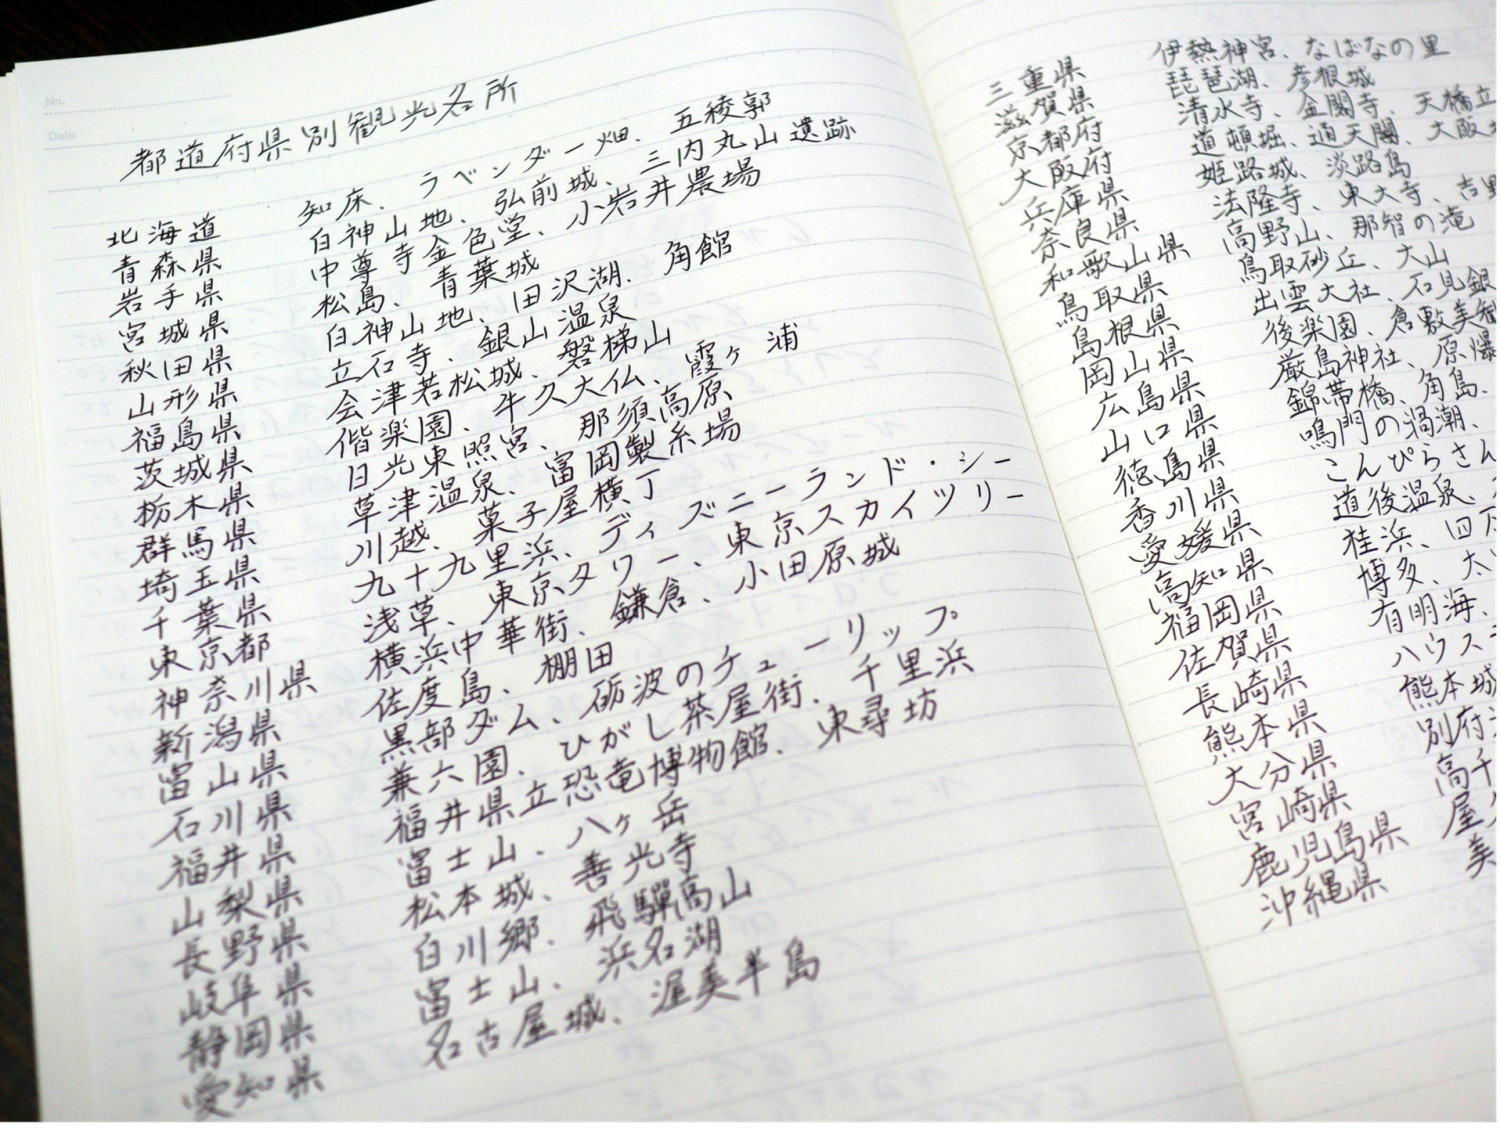 No.
Date
都道府県別観光名所
北海道 知床、ラベンダー畑、五稜郭
青森県 白神山地、弘前城、三内丸山遺跡
岩手県 中尊寺金色堂、小岩井農場
宮城県 松島、青葉城
秋田県 白神山地、田沢湖、角館
山形県 立石寺、銀山温泉
福島県 会津若松城、磐梯山
茨城県 偕楽園、牛久大仏、霞ヶ浦
栃木県 日光東照宮、那須高原
群馬県 草津温泉、富岡製糸場
埼玉県 川越、菓子屋横丁
千葉県 九十九里浜、ディズニーランド・シー
東京都 浅草、東京タワー、東京スカイツリー
神奈川県 横浜中華街、鎌倉、小田原城
新潟県 佐度島、棚田
富山県 黒部ダム、砺波のチューリップ
石川県 兼六園、ひがし茶屋街、千里浜
福井県 福井県立恐竜博物館、東尋坊
山梨県 富士山、八ヶ岳
長野県 松本城、善光寺
岐阜県 白川郷、飛騨高山
静岡県 富士山、浜名湖
愛知県 名古屋城、渥美半島
三重県 伊熱神宮、なばなの里
滋賀県 琵琶湖、彦根城
京都府 清水寺、金閣寺、天橋立
大阪府 道頓堀、通天閣、大阪
兵庫県 姫路城、淡路島
奈良県 法隆寺、東大寺、吉野
和歌山県 高野山、那智の滝
鳥取県 鳥取砂丘、大山
島根県 出雲大社、石見銀
岡山県 後楽園、倉敷美観
広島県 厳島神社、原爆
山口県 錦帯橋、角島、
徳島県 鳴門の渦潮、
香川県 こんぴらさん
愛媛県 道後温泉、
高知県 桂浜、四万
福岡県 博多、太
佐賀県 有明海、
長崎県 ハウス
熊本県 熊本城
大分県 別府
宮崎県 高千
鹿児島県 屋久
沖縄県 美